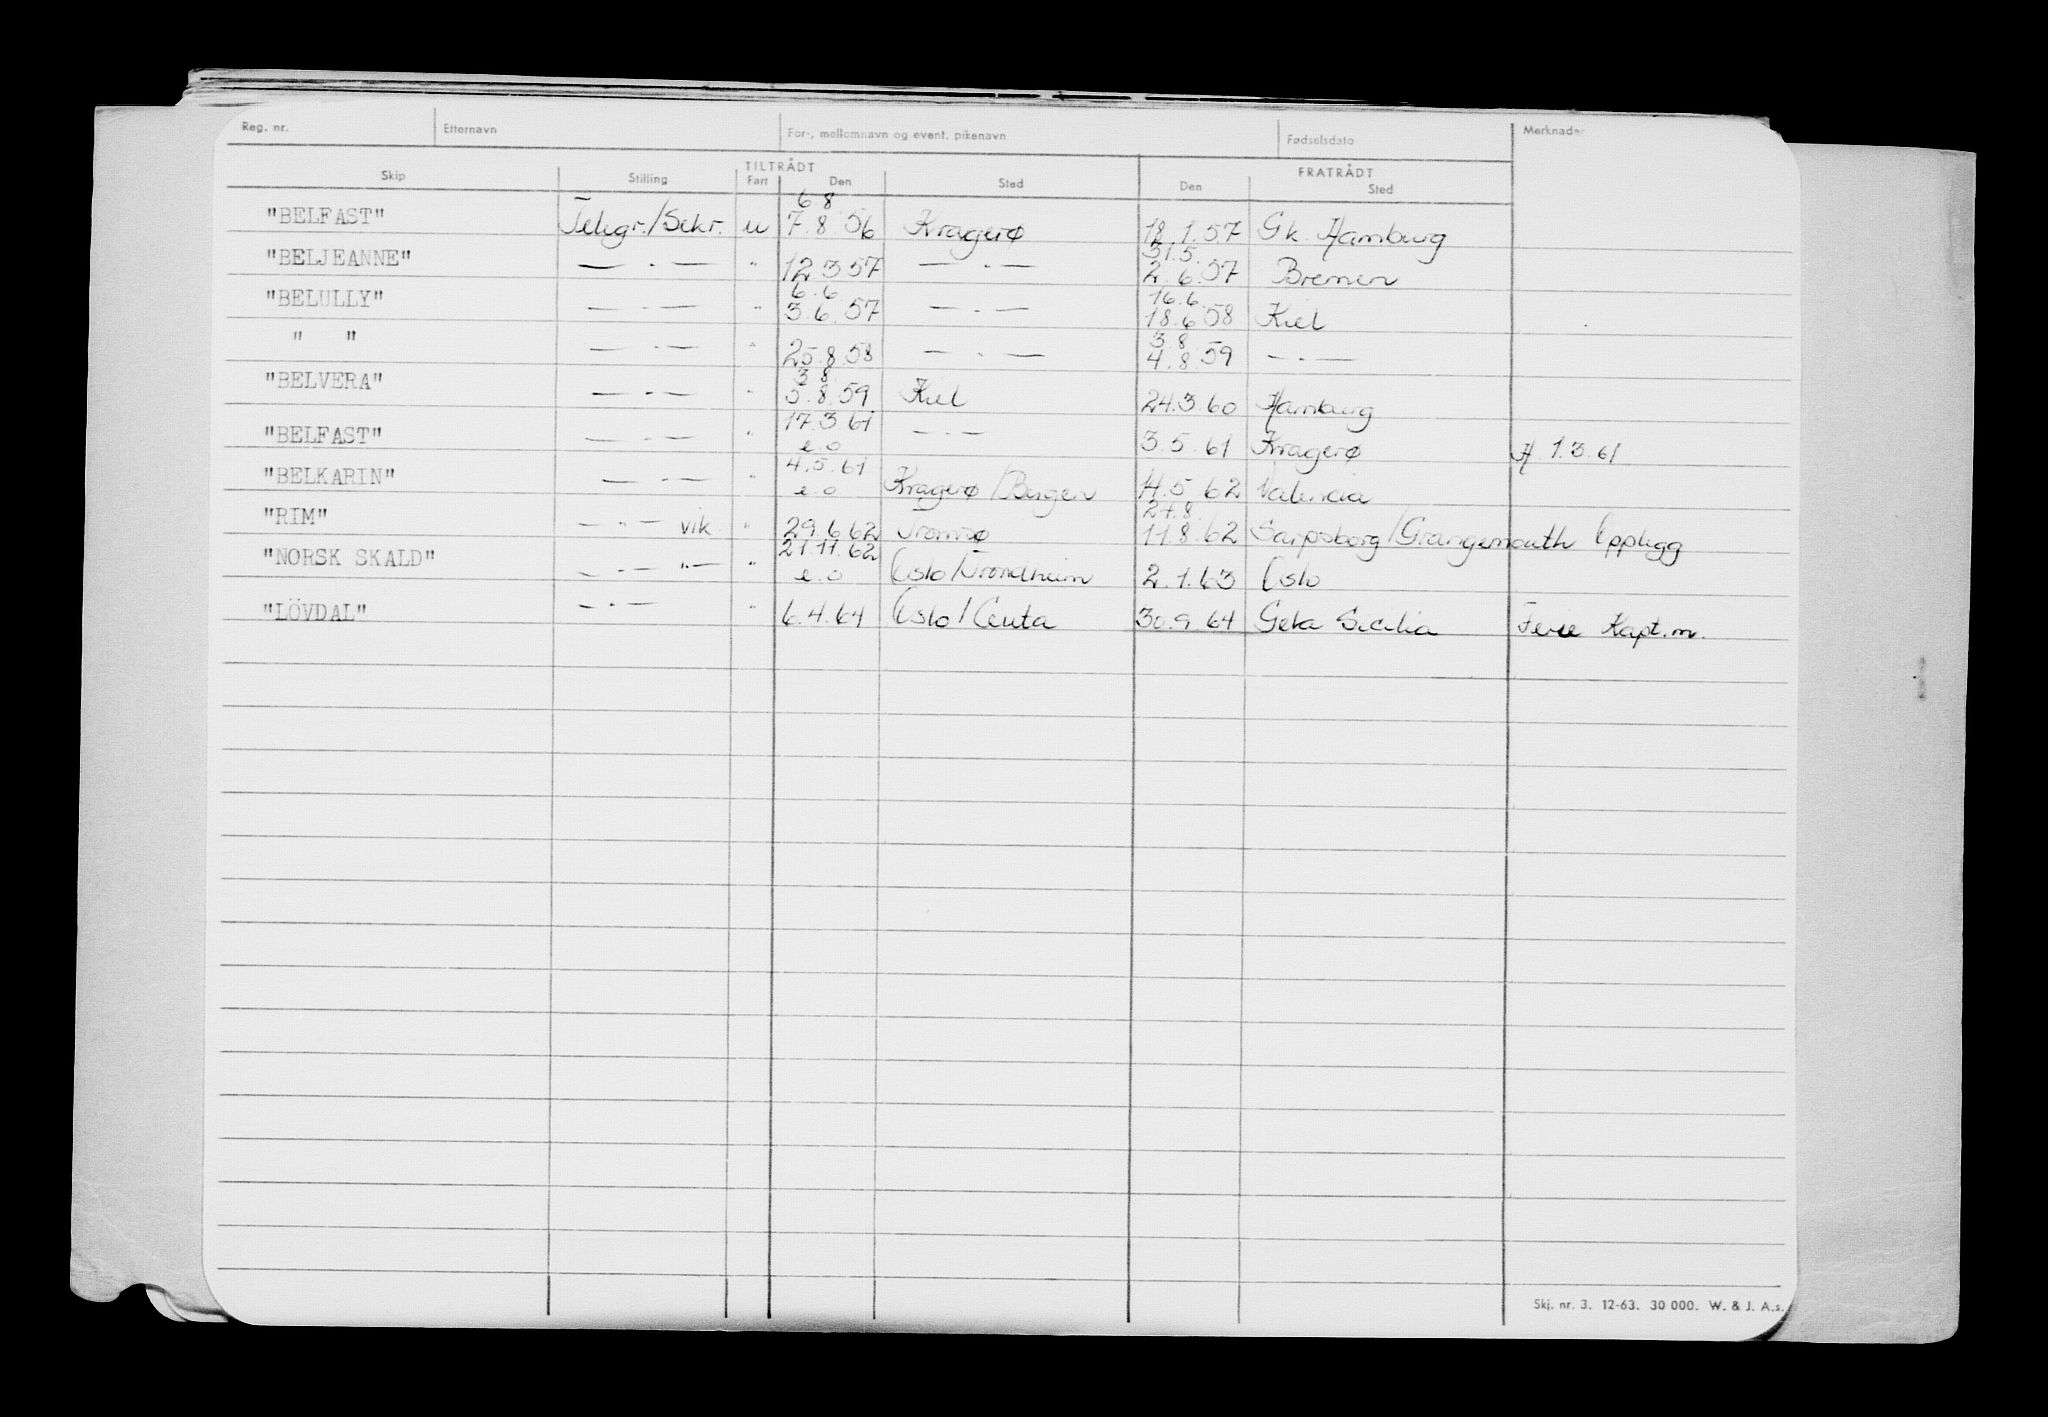 Reg. nr. Etternavn For-, mellomnavn og event. pikenavn Fødselsdato Merknader
TILTRÅDT FRATRÅDT
Skip Stilling Fart Den Sted Den Sted
6.8
"BELFAST" Telegr./Sekr. u 7.8.56 Kragerø 18.1.57 Gk. Hamburg
31.5.
"BELJEANNE" — . — " 12.3.57 — . — 2.6.57 Bremen
6.6 16.6.
"BELULLY" — . — " 3.6.57 — . — 18.6.58 Kiel
3.8.
" " — . — " 25.8.58 — . — 4.8.59 — . —
3.8.
"BELVERA" — . — " 5.8.59 Kiel 24.3.60 Hamburg
17.3.61
"BELFAST" — . — " e.o — . — 3.5.61 Kragerø A 1.3.61
4.5.61
"BELKARIN" — . — " e.o Kragerø/Bergen 14.5.62 Valencia
27.8.
"RIM" — " — vik " 29.6.62 Tromsø 11.8.62 Sarpsborg/Grangemouth Opplegg
21.11.62
"NORSK SKALD" — " — " e.o Oslo/Trondheim 2.1.63 Oslo
"LÖVDAL" — . — " 6.4.64 Oslo/Ceuta 30.9.64 Gela Sicilia Ferie Kapt.m.
Skj. nr. 3. 12-63. 30 000. W. & J. A.s.